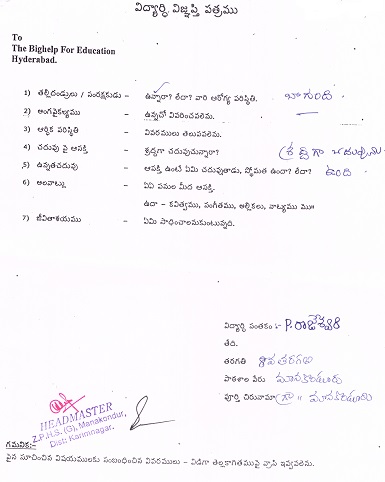 విద్యార్ధి విజ్ఞప్తి పత్రము
To
The Bighelp For Education
Hyderabad.
1) తల్లిదండ్రులు / సంరక్షకుడు – ఉన్నారా? లేదా? వారి ఆరోగ్య పరిస్థితి. బాగుంది
2) అంగవైకల్యము – ఉన్నచో వివరించవలెను. —
3) ఆర్ధిక పరిస్థితి – వివరములు తెలుపవలెను.
4) చదువు పై ఆసక్తి – శ్రద్ధగా చదువుచున్నారా? శ్రద్ధగా
5) ఉన్నతచదువు – ఆసక్తి ఉంటే ఏమి చదువుతాడు, స్తోమత ఉందా? లేదా? ఉంది
6) అలవాట్లు – ఏఏ పనుల మీద ఆసక్తి.
ఉదా – కవిత్వము, సంగీతము, అల్లికలు, నాట్యము మ॥
7) జీవితాశయము – ఏమి సాధించాలనుకుంటున్నది.
విద్యార్థి సంతకం :- P. రాజేశ్వరి
తేది.
తరగతి తరగతి
పాఠశాల పేరు మానకొండూరు
పూర్తి చిరునామా గ్రా॥ మానకొండూరు
HEADMASTER
Z.P.H.S. (G), Manakondur,
Dist: Karimnagar.
గమనిక:–
పైన సూచించిన విషయములకు సంబంధించిన వివరములు – విడిగా తెల్లకాగితముపై వ్రాసి ఇవ్వవలెను.